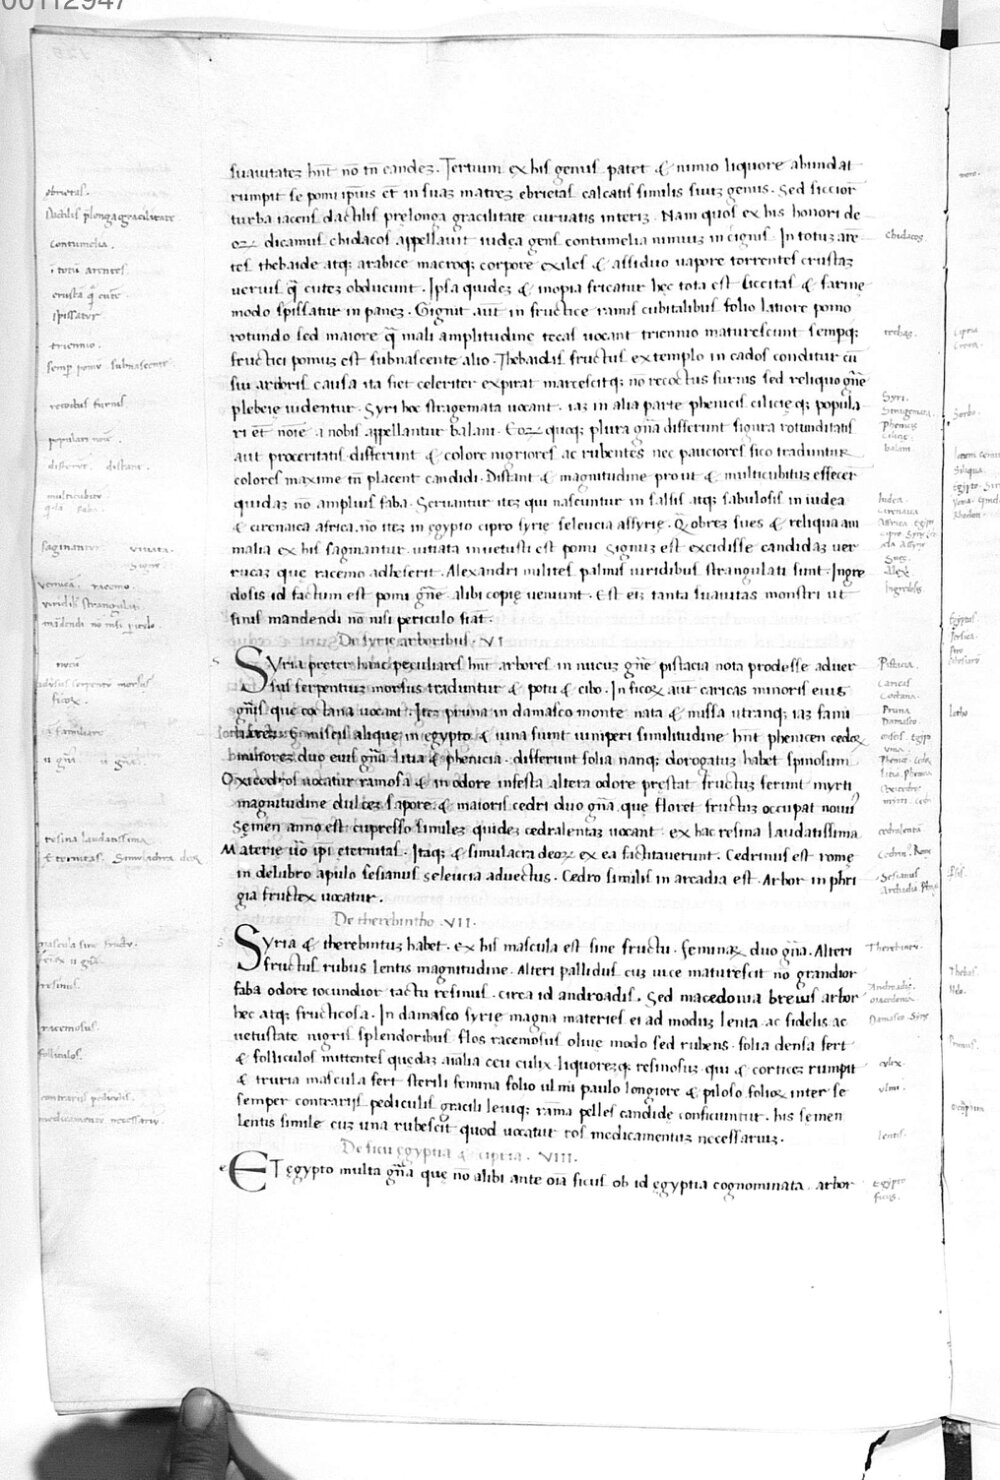 00112947
suauitateʒ hn̄t nō tn̄ eandeʒ. Tertium ex his genus patet & nimio liquore abundat
rumpit se pomi ip̄ius et̄ in suaʒ matreʒ ebrietas calcatis similis suus genus. Sed siccior
turba iacens dactilis pręlonga gracilitate curuatis interiʒ. Nam quos ex his honori de
oꝝ dicamus chidacos appellauit iudęa gens contumelia nimuʒ insignis. In totuʒ arē
tes thebaide atq; arabice macroq; corpore exiles & assiduo uapore torrentes crustaʒ
uerius q̄ cuteʒ obducunt. Ipsa quideʒ & inopia fricatur hęc tota est siccitas & farinę
modo spissatur in paneʒ. Gignit aūt in fructice ramis cubitalibus folio latiore pomo
rotundo sed maiore q̄ mali amplitudine tecas uocant triennio maturescunt sempq;
fructici pomuʒ est subnascente alio. Thebaidis fructus extemplo in cados conditur cū
sui ardoris causa ita fiet celeriter expirat marcescitq; nō recoctus furnis sed reliquo gn̄e
plebeię uidentur. Syri hoc stragemata uocant. iaʒ in alia parte phenicis cilicięq; popula
ri et̄ noīe a nobis appellantur balani. Eoꝝ quoq; plura gn̄a differunt figura rotunditatis
aut proceritatis differunt & colore nigriores ac rubentes nec pauciores fico traduntur
colores maxime tn̄ placent candidi. Distant & magnitudine prout & multicubituʒ effecer̄
quidaʒ nō amplius faba. Seruantur iteʒ qui nascuntur in salsis atq; sabulosis in iudea
& cirenaica africa. nō iteʒ in ęgypto cipro syrię seleucia assyrię. Q̄obreʒ sues & reliqua ani
malia ex his saginantur. uitiata inuetusti est pomi signuʒ est excidisse candidaʒ uer
rucaʒ quę racemo adheserit. Alexandri milites palmis uiridibus strangulati sunt. Ingre
dosis id factum est pomi gn̄e alibi copię ueniunt. Est eiʒ tanta suauitas monstri ut
finis mandendi nō nisi periculo fiāt.
De syrię arboribus. VI
Syria pręter hanc peculiares hn̄t arbores in nucuʒ gn̄e pistacia nota prodesse aduer
sus serpentiuʒ morsus traduntur & potu & cibo. In ficoꝝ aūt caricas minoris eius
gn̄is. quę coctana uocant. Iteʒ pruna in damasco monte nata & missa utranq; iaʒ fami
duo eius gn̄a litia & phenicia. differunt folia nanq; dorogatuʒ habet spinosum
Oxicedros uocatur ramosa & in odore infesta altera odore pręstat fructus ferunt myrti
magnitudine dulceʒ sapore. & maioris cedri duo gn̄a. quę floret fructuʒ occupat nouuʒ
Sęmen anno est cupresso simileʒ quideʒ cedralentaʒ uocant. ex hac resina laudatissima
Materię uō ip̄i ęternitas. Itaq; & simulacra deoꝝ ex ea factitauerunt. Cedrinus est romę
in delubro apulo sesianus seleucia aduectus. Cedro similis in arcadia est. Arbor in phri
gia fructex uocatur.
De therebintho. VII.
Syria & therebintuʒ habet. ex his mascula est sine fructu. feminaꝝ duo gn̄a. Alteri
fructus rubus lentis magnitudine. Alteri pallidus cuʒ uice maturescit nō grandior
faba odore iocundior tactu resinus. circa id androadis. Sed macedonia breuis arbor
hęc atq; fructicosa. In damasco syrię magna materies ei ad moduʒ lenta ac fidelis ac
uetustate nigris splendoribus flos racemosus oliuę modo sed rubens. folia densa fert
& folliculos mittentes quędaʒ aīalia ceu culix. liquoreʒq; resinosuʒ. qui & corticeʒ rumpit
& truria mascula fert sterili femina folio ulmi paulo longiore & piloso folioꝝ inter se
semper contrariis pediculis gracili leuiq; rama pelles candidę conficiuntur. his semen
lentis simile cuʒ una rubescit quod uocatur ros medicamentuʒ necessariuʒ.
De ficu ęgyptia & cipria. VIII.
ET ęgypto multa gn̄a quę nō alibi ante oīa ficus ob id ęgyptia cognominata. arbor
ebrietas.
Dactilis plonga gracilitate
contumelia.
i totū arentes
crusta q̄ cutē
spissatur
triennio.
semp pomū subnascente
recoctus furnis
populari noīe.
differūt. distant.
multicubite
saginantur uitiata.
signū
uiridib strangulati.
mādendi nō nisi piculo
nucū
aduersus serpentū morsus
ficoꝝ.
familiare
resina laudatissima
Eternitas. Simulachra deoꝝ
mascula sine fructu.
resinus.
racemosus.
folliculos.
contrariis pediculis.
medicamento necessariū.
chidacos
techas.
Syri.
Stragemata.
Phenices
Cilicię.
balani
Iudea.
Cirenaica
Affrica. egip
Sues.
Alex.
Ingredosis
Pistacia.
Caricas
Coctana.
Pruna
Damasco.
cedralenta
Cedrin9 Rome
Sesianus
Therebintus.
Androadis.
macedonia
Damasco Syrię
culex.
ulmi.
lentis.
Egypto
ficus.